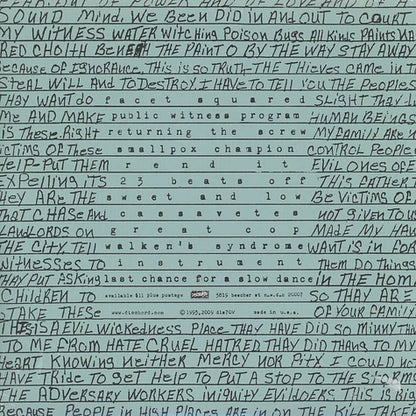 FEAR. OUT OF POWER AND OF LOVE AND OF A
SOUND MIND. WE BEEN DID IN AND OUT TO COURT
MY WITNESS WATER WITCHING POISON BUGS All KINdS PAINTS
RED CHOITH BENEATH THE PAINT O BY THE WAY STAY AWAY
BECAUSE OF IGNORANCE. THIS IS SO TRUTH-THE THIEVES CAME IN T
STEAL WILL AND TO DESTROY. I HAVE TO TELL YOU THE PEOPLE
THAY WANT do facet squared SLIGHT THAY
ME AND MAKE public witness program HUMAN BEINGS
IS THESE. RIGHT returning the screw MY FAMILY ARE
VICTIMS OF THESE smallpox champion CONTROL PEOPLE
HELP- PUT THEM rend it EVIL ONES OF
EXPELLING ITS 23 beats off THIS FATHER
HEY ARE THE sweet and low BE VICTIMS OF
THAT CHASE AND cassavetes NOT GIVEN TO US
LANDLORDS ON great cop MADE MY HAW
THE CITY. TELL walken's syndrome WANT IS IN FOR
WITNESSES TO instrument THEM DO THINGS
THAY PUT ASKING last chance for a slow dance IN THE HOM
CHILDREN TO available $11 plus postage 3819 beecher st n.w. 20007 SO THAY ARE
TAKE THESE www.dischord.com ©1993,2009 dis70V made in u.s.a. OF YOUR FAMILY
THIS IS A EVIL WICKEDNESS PLACE THAY HAVE DID SO MINNY
TO ME FROM HATE CRUEL HATRED THAY DID THANS TO MY
HEART KNOWING NEITHER MERCY NOR PITY I COULD NO
HAVE TRIDE TO GET HELP TO PUT A STOP TO THE STORMS
THE ADVERSARY WORKERS INIQUITY EVILDOERS THIS IS
BECAUSE PEOPLE IN HIGH PLACES ARE IN ON THE KILL